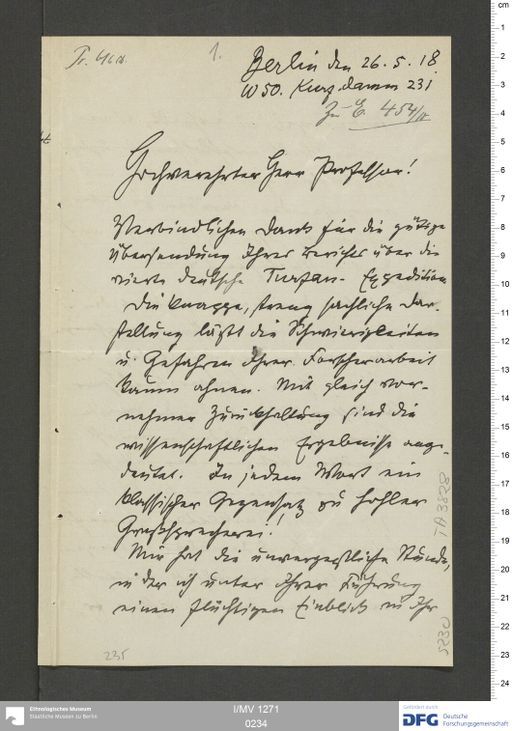 1.
Berlin den 26.5.18.
W 50. Kurf. damm 231
Zu E. 454/18
Hochverehrter Herr Professor!
Verbindlichen Dank für die gütige
Übersendung Ihres Berichts über die
vierte deutsche Turfan-Expedition.
Die knappe, streng sachliche Dar-
stellung läßt die Schwierigkeiten
u. Gefahren Ihrer Forscherarbeit
kaum ahnen. Mit gleich vor-
nehmer Zurückhaltung sind die
wissenschaftlichen Ergebnisse ange-
deutet. In jedem Wort ein
klassischer Gegensatz zu hohler
Großsprecherei!
Mir hat die unvergeßliche Stunde,
in der ich unter Ihrer Führung
einen flüchtigen Einblick in Ihr
235
IA 3828
5230
cm
1
2
3
4
5
6
7
8
9
10
11
12
13
14
15
16
17
18
19
20
21
22
23
24
Ethnologisches Museum
Staatliche Museen zu Berlin
I/MV 1271
0234
Gefördert durch
DFG Deutsche
Forschungsgemeinschaft